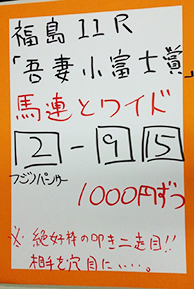 福島 11R
「吾妻小富士賞」
馬連とワイド
2 - 9 5
フジノパンサー
1000円ずつ
※絶好枠の叩き二走目!!
相手を穴目に・・・。